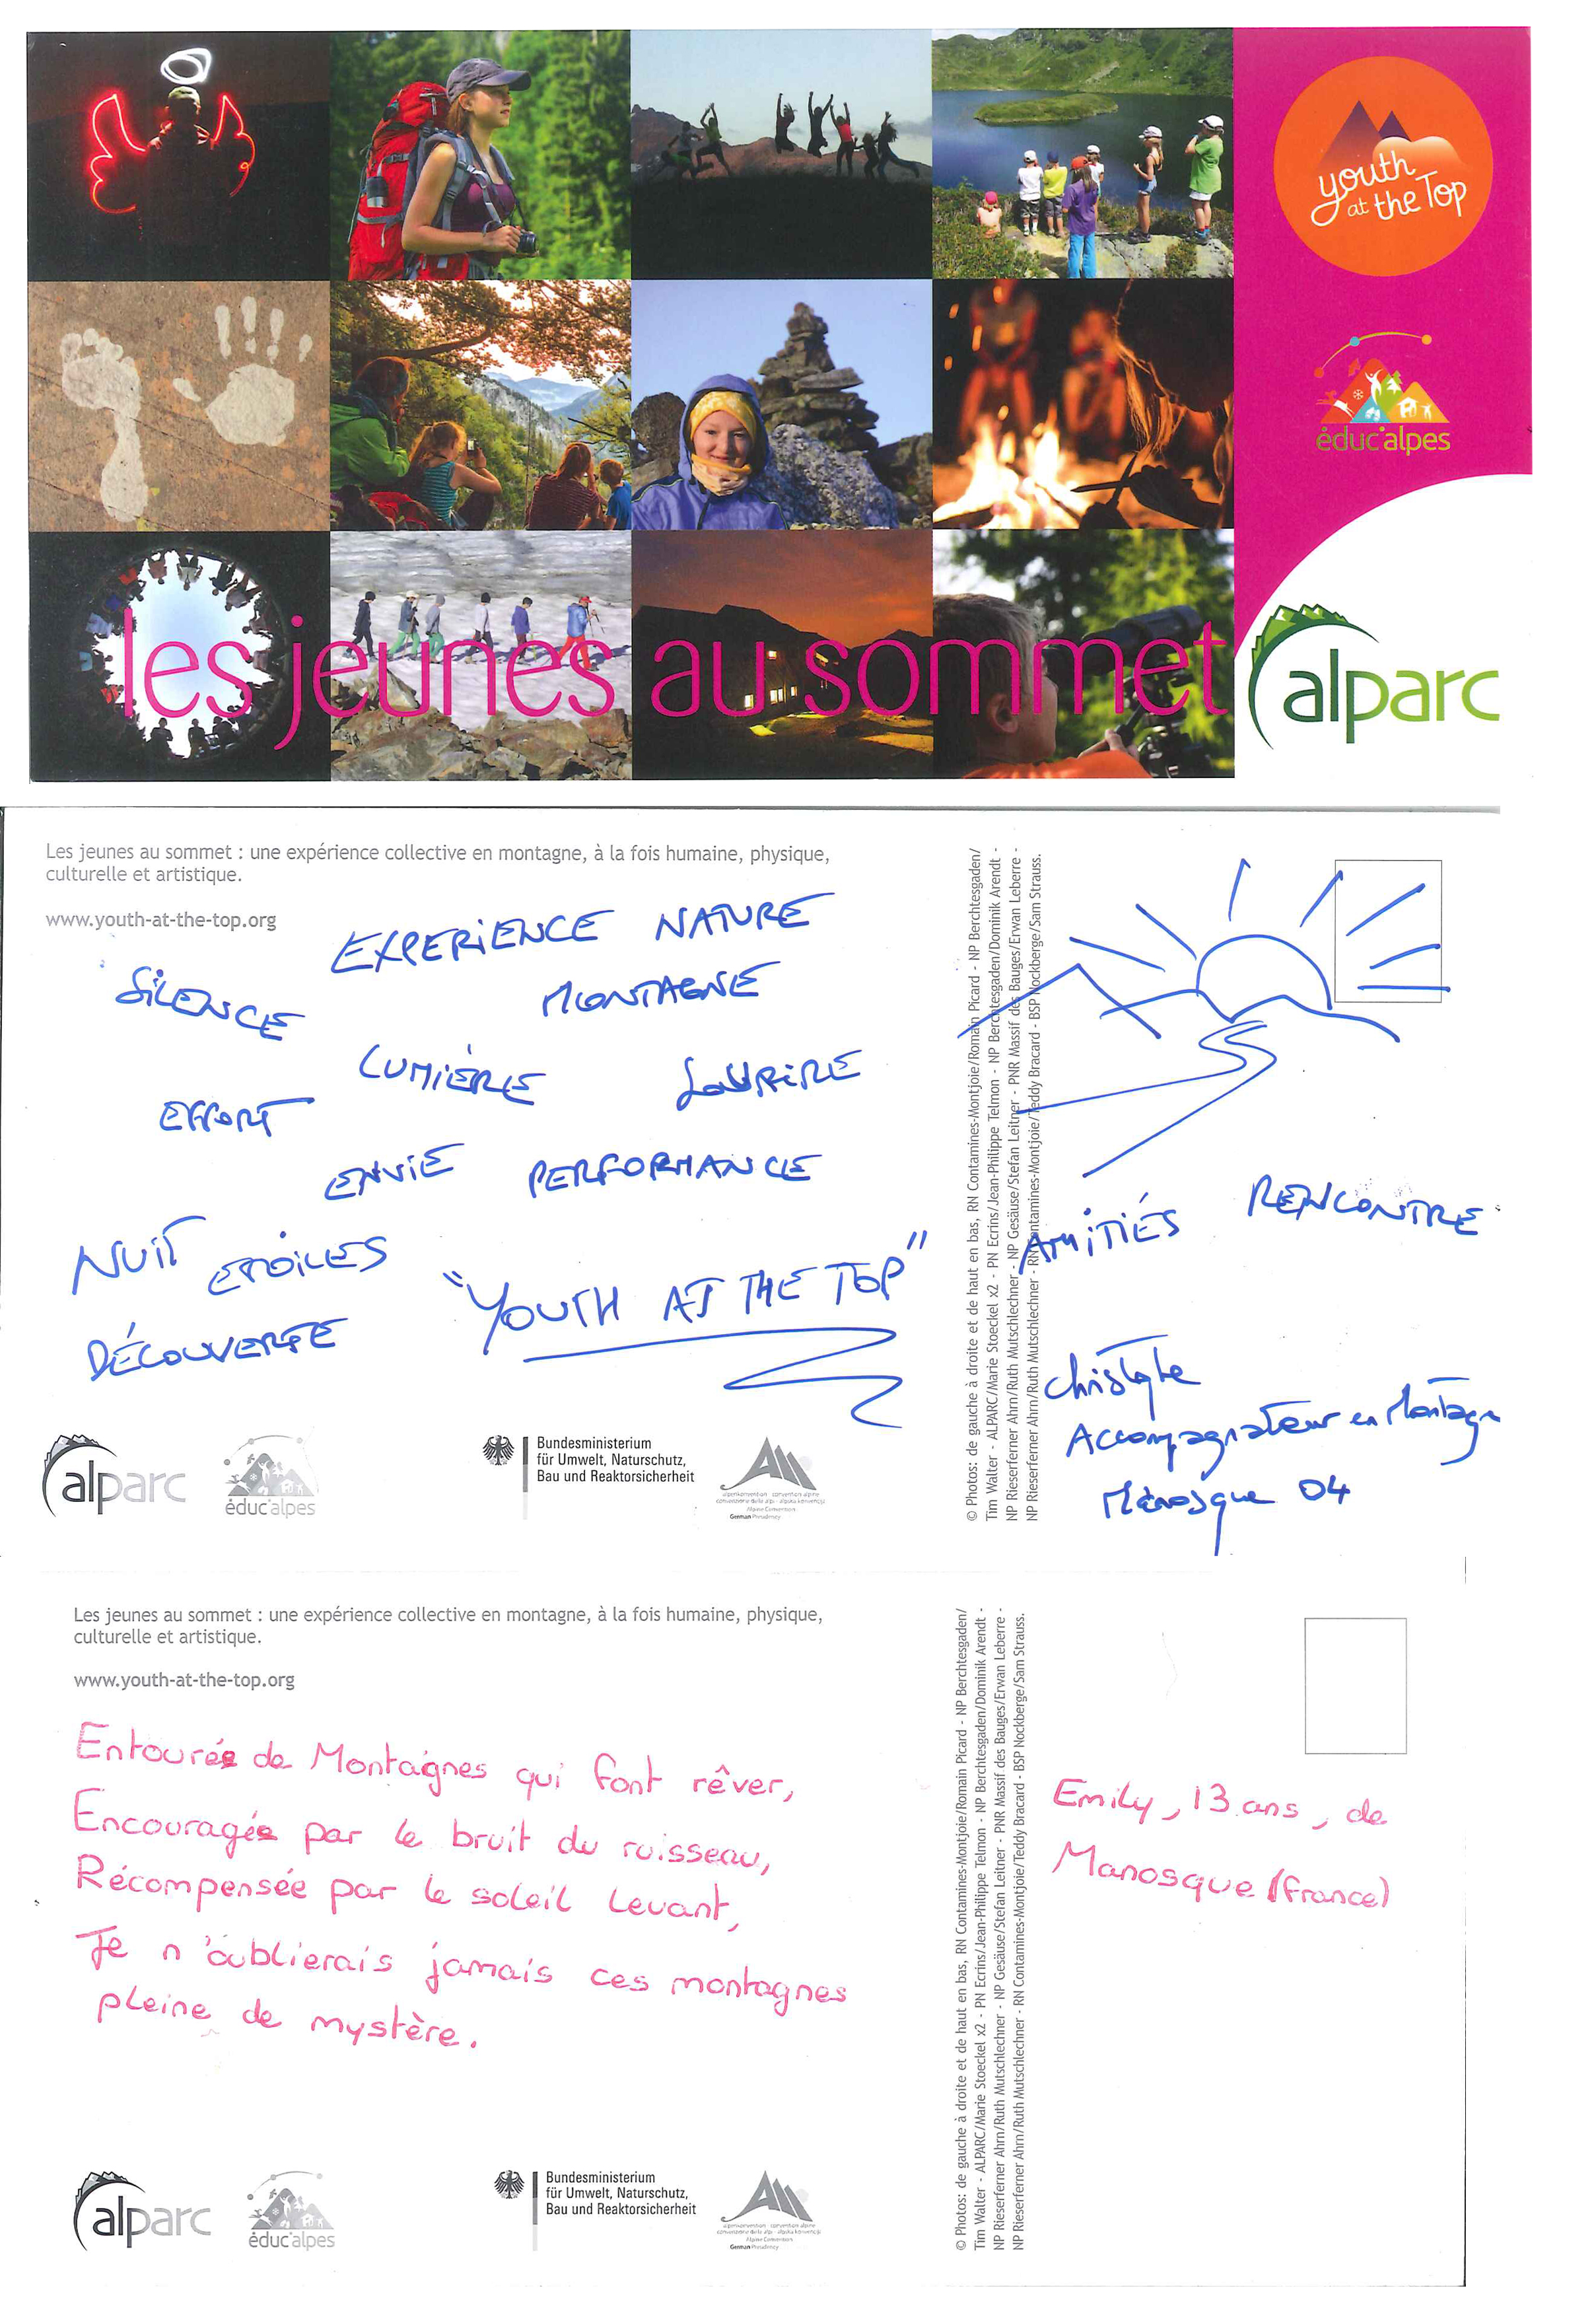 youth
at the Top
éduc'alpes
les jeunes au sommet
alparc
Les jeunes au sommet : une expérience collective en montagne, à la fois humaine, physique,
culturelle et artistique.
www.youth-at-the-top.org
EXPERIENCE NATURE
SILENCE
MONTAGNE
LUMIÈRE
SOURIRE
EFFORT
ENVIE PERFORMANCE
NUIT ETOILES
"YOUTH AT THE TOP"
DÉCOUVERTE
alparc
éduc'alpes
Bundesministerium
für Umwelt, Naturschutz,
Bau und Reaktorsicherheit
German Presidency
© Photos: de gauche à droite et de haut en bas, RN Contamines-Montjoie/Romain Picard - NP Berchtesgaden/
Tim Walter - ALPARC/Marie Stoeckel x2 - PN Ecrins/Jean-Philippe Telmon - NP Berchtesgaden/Dominik Arendt -
NP Rieserferner Ahrn/Ruth Mutschlechner - NP Gesäuse/Stefan Leitner - PNR Massif des Bauges/Erwan Leberre -
NP Rieserferner Ahrn/Ruth Mutschlechner - RN Contamines-Montjoie/Teddy Bracard - BSP Nockberge/Sam Strauss.
AMITIÉS RENCONTRE
Christophe
Accompagnateur en Montagne
Manosque 04
Les jeunes au sommet : une expérience collective en montagne, à la fois humaine, physique,
culturelle et artistique.
www.youth-at-the-top.org
Entourée de Montagnes qui font rêver,
Encouragée par le bruit du ruisseau,
Récompensée par le soleil levant,
Je n'oublierais jamais ces montagnes
pleine de mystère.
alparc
éduc'alpes
Bundesministerium
für Umwelt, Naturschutz,
Bau und Reaktorsicherheit
German Presidency
© Photos: de gauche à droite et de haut en bas, RN Contamines-Montjoie/Romain Picard - NP Berchtesgaden/
Tim Walter - ALPARC/Marie Stoeckel x2 - PN Ecrins/Jean-Philippe Telmon - NP Berchtesgaden/Dominik Arendt -
NP Rieserferner Ahrn/Ruth Mutschlechner - NP Gesäuse/Stefan Leitner - PNR Massif des Bauges/Erwan Leberre -
NP Rieserferner Ahrn/Ruth Mutschlechner - RN Contamines-Montjoie/Teddy Bracard - BSP Nockberge/Sam Strauss.
Emily, 13 ans, de
Manosque (France)